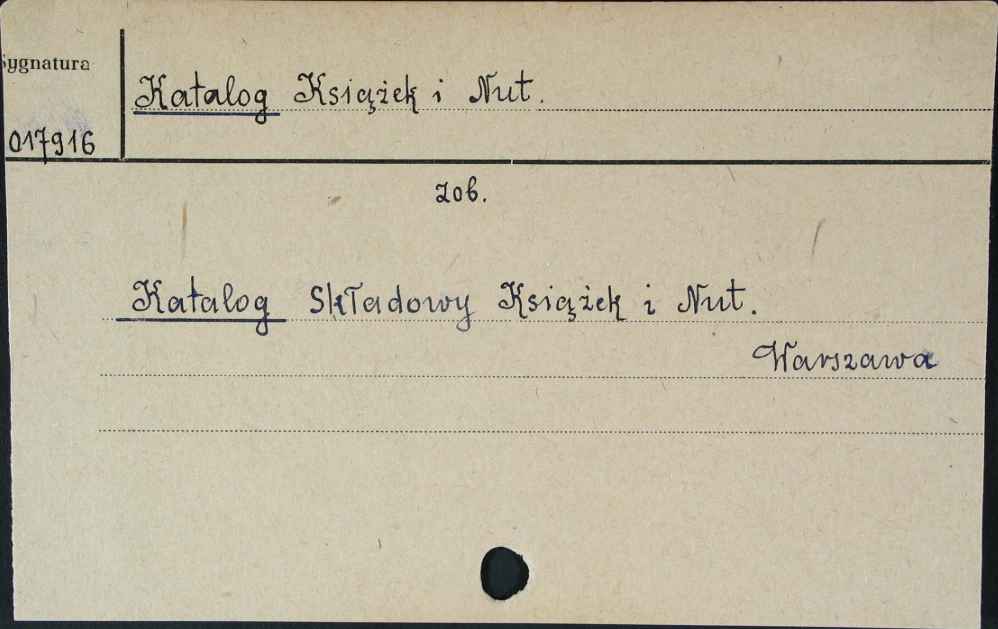 Sygnatura
Katalog Książek i Nut.
017916
zob.
Katalog Składowy Książek i Nut.
Warszawa